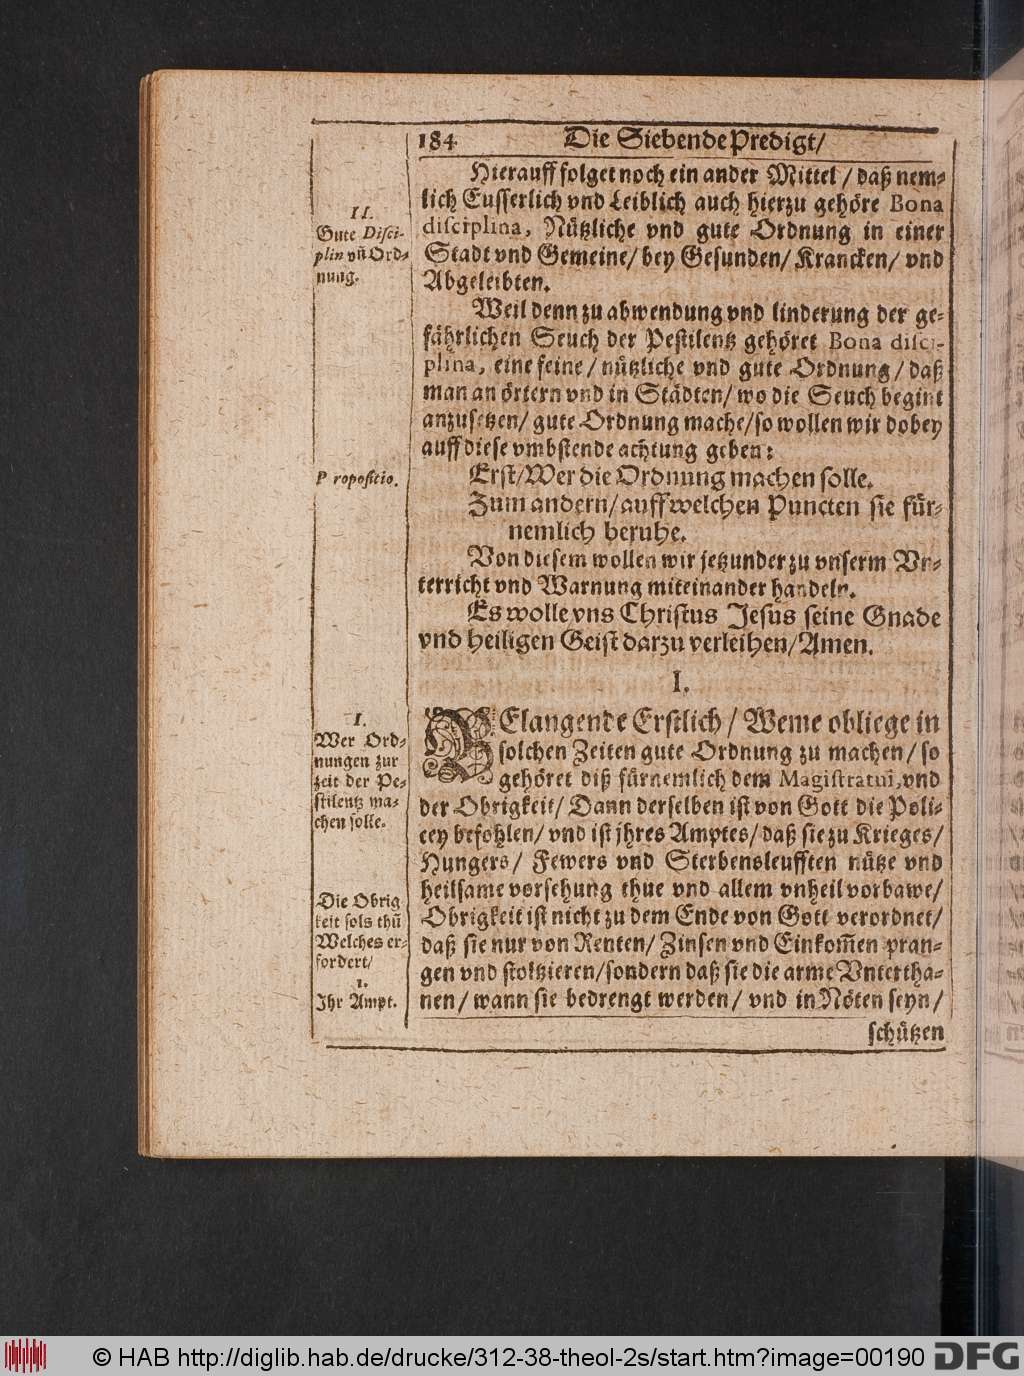 184 Die Siebende Predigt/
Hierauff folget noch ein ander Mittel / daß nem-
lich Eusserlich vnd Leiblich auch hierzu gehöre Bona
disciplina, Nützliche vnd gute Ordnung in einer
Stadt vnd Gemeine/ bey Gesunden/ Krancken/ vnd
Abgeleibten.
II.
Gute Disci-
plin vñ Ord-
nung.
Weil denn zu abwendung vnd linderung der ge-
fährlichen Seuch der Pestilentz gehöret Bona disci-
plina, eine feine / nützliche vnd gute Ordnung / daß
man an örtern vnd in Städten/ wo die Seuch begint
anzusetzen/ gute Ordnung mache/ so wollen wir dobey
auff diese vmbstende achtung geben:
Propositio.
Erst/ Wer die Ordnung machen solle.
Zum andern/ auff welchen Puncten sie für-
nemlich beruhe.
Von diesem wollen wir jetzunder zu vnserm Vn-
terricht vnd Warnung miteinander handeln.
Es wolle vns Christus Jesus seine Gnade
vnd heiligen Geist darzu verleihen/ Amen.
I.
I.
Wer Ord-
nungen zur
zeit der Pe-
stilentz ma-
chen solle.
BElangende Erstlich / Weme obliege in
solchen Zeiten gute Ordnung zu machen / so
gehöret diß fürnemlich dem Magistratui, vnd
der Obrigkeit/ Dann derselben ist von Gott die Poli-
cey befohlen/ vnd ist jhres Amptes/ daß sie zu Krieges/
Hungers/ Fewers vnd Sterbensleufften nütze vnd
heilsame vorsehung thue vnd allem vnheil vorbawe/
Obrigkeit ist nicht zu dem Ende von Gott verordnet/
daß sie nur von Renten/ Zinsen vnd Einkom̃en pran-
gen vnd stoltzieren/ sondern daß sie die arme Vntertha-
nen/ wann sie bedrengt werden/ vnd in Nöten seyn/
Die Obrig
keit sols thũ
Welches er-
fordert/
1.
Ihr Ampt.
schützen
© HAB http://diglib.hab.de/drucke/312-38-theol-2s/start.htm?image=00190 DFG